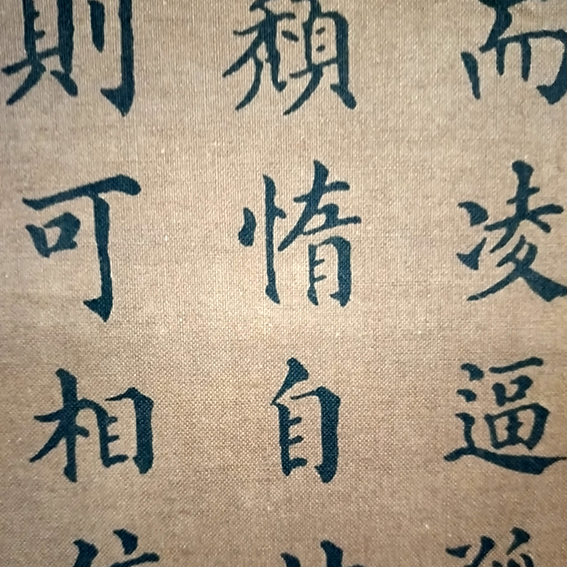 而凌逼
頹惰自
則可相